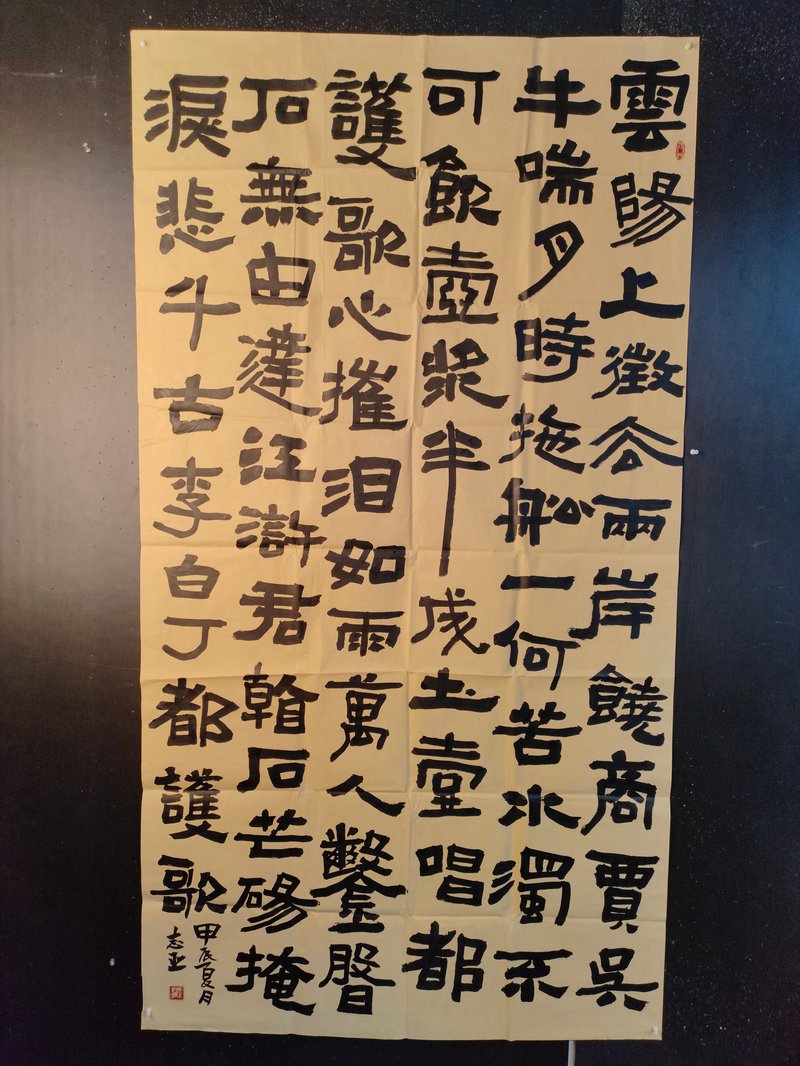 雲陽上徵去兩岸饒商賈吳
牛喘月時拖船一何苦水濁不
可飲壺漿半成土壹唱都
護歌心摧泪如雨萬人鑿
石無由達江滸君看石芒碭掩
淚悲千古李白丁都護歌
甲辰夏月
志亚